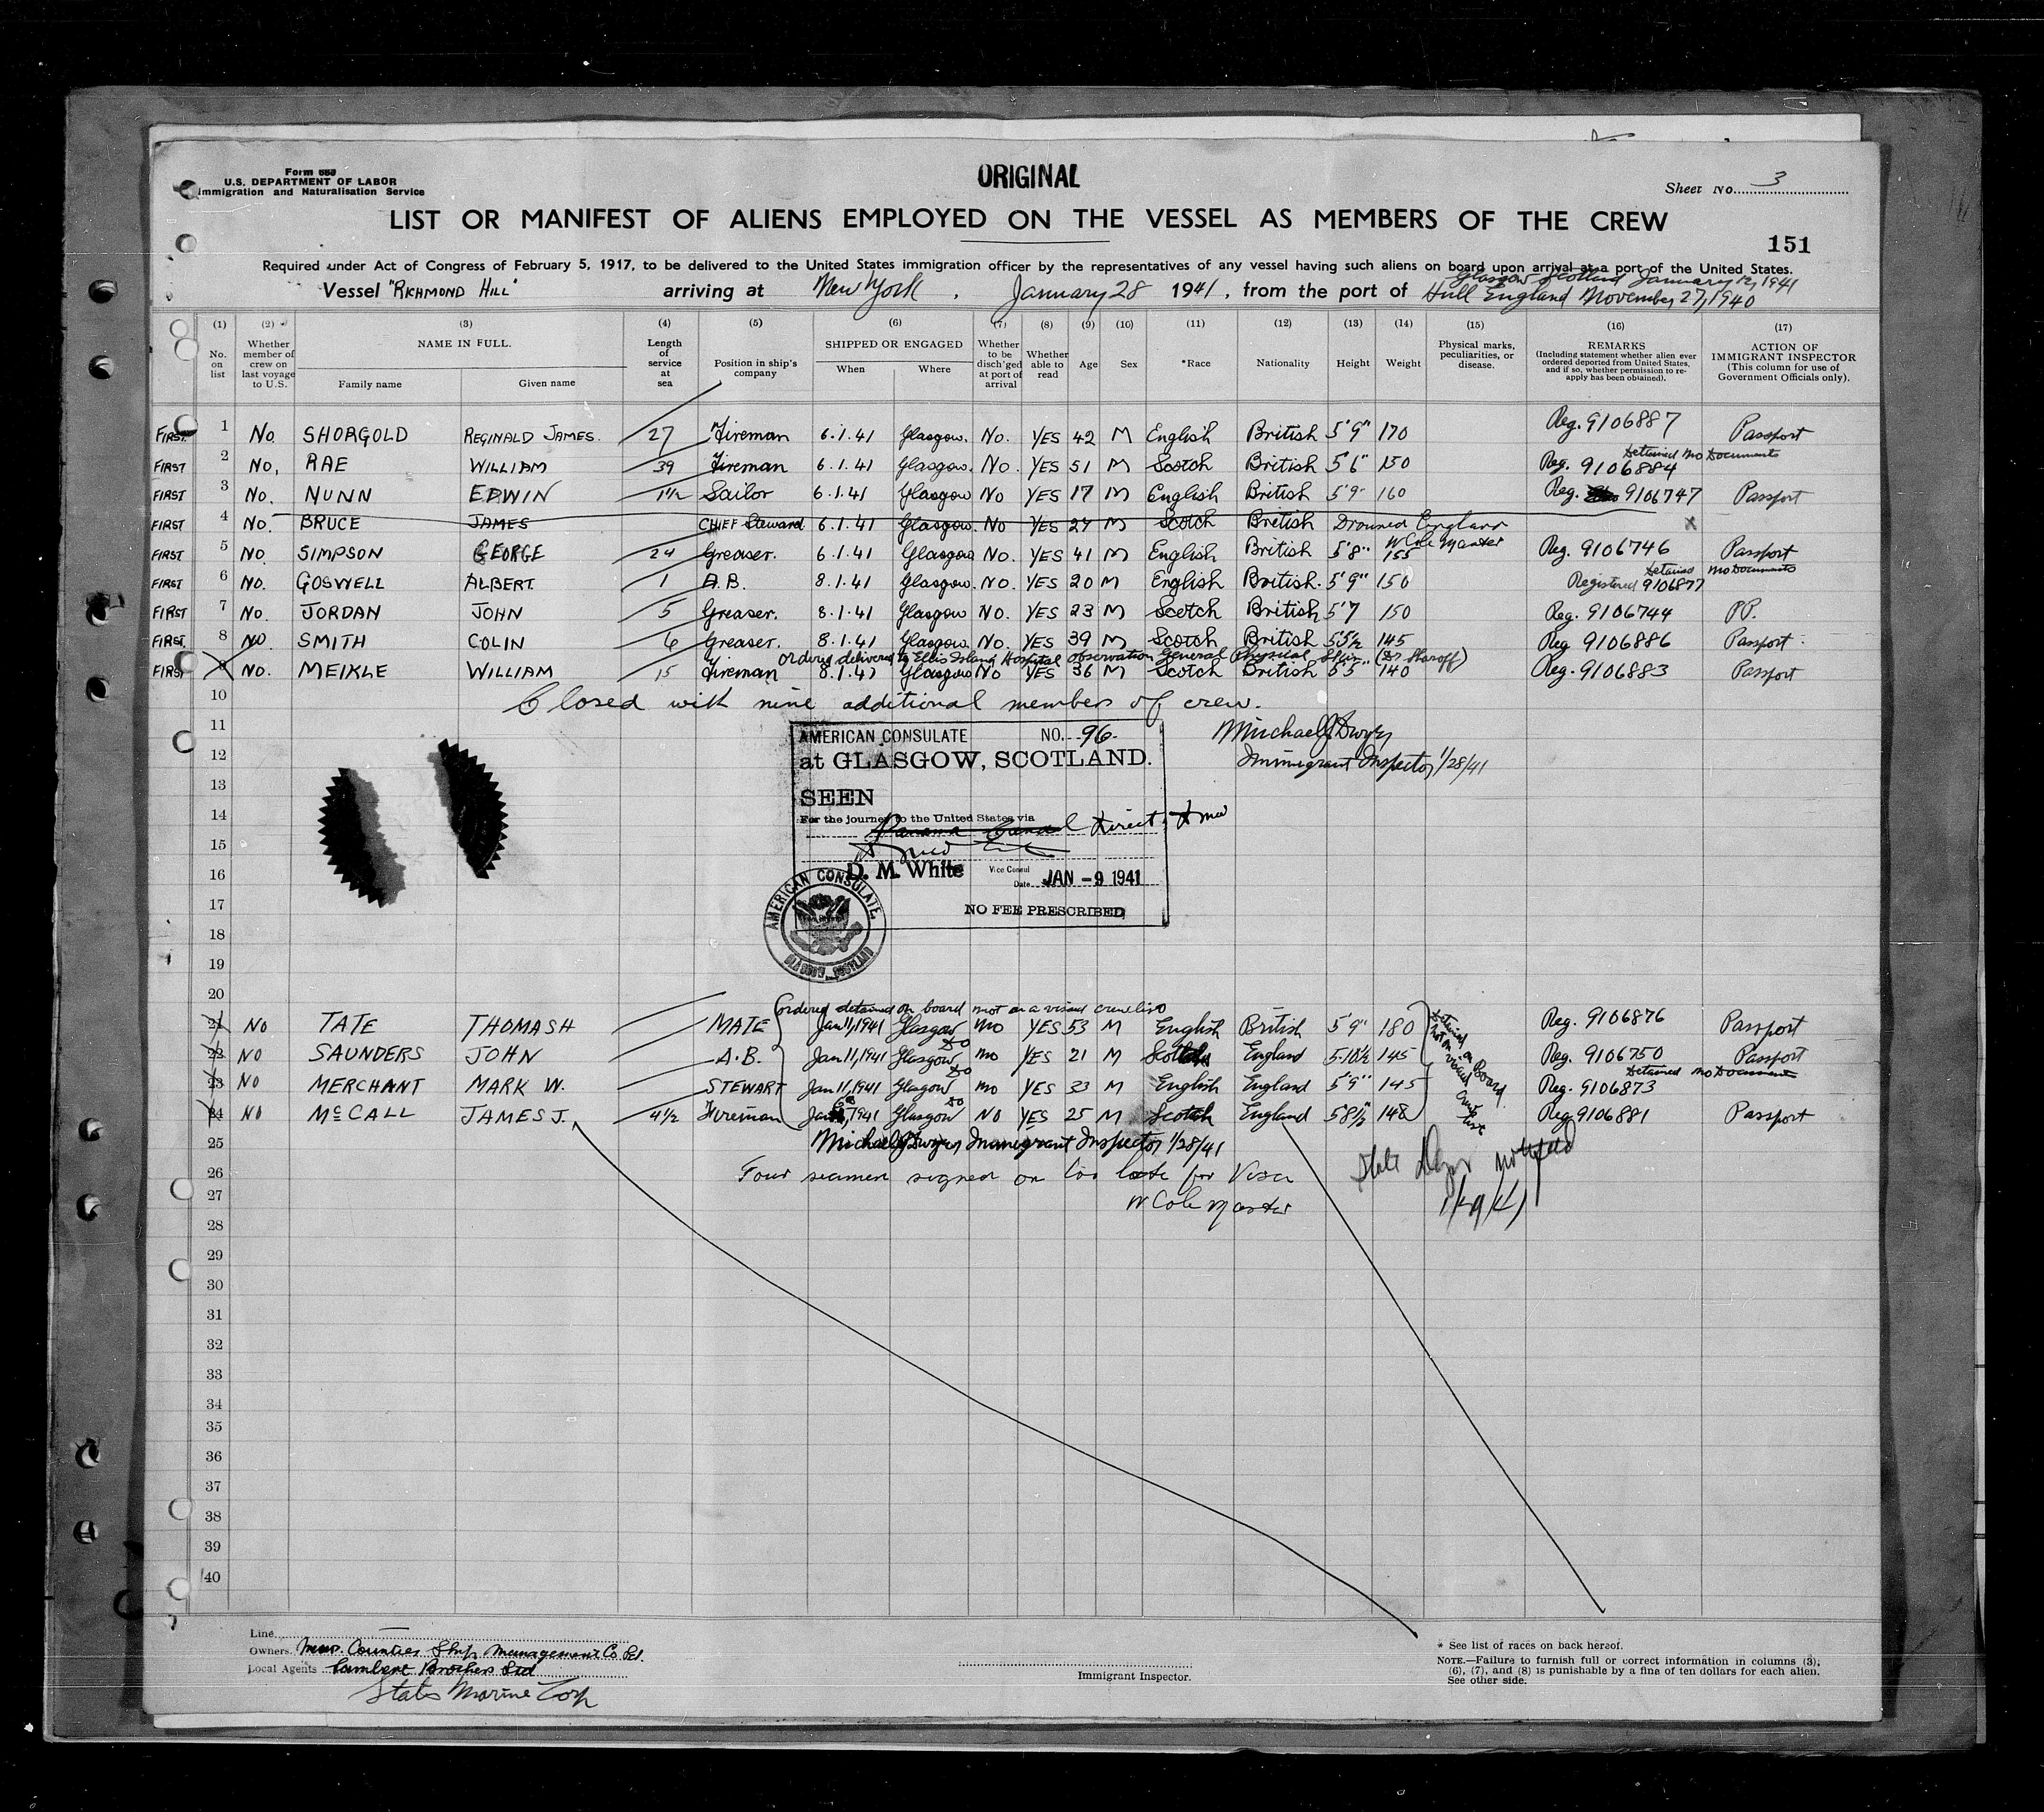 Form 680
U.S. DEPARTMENT OF LABOR
Immigration and Naturalisation Service
ORIGINAL
Sheet No. 3
LIST OR MANIFEST OF ALIENS EMPLOYED ON THE VESSEL AS MEMBERS OF THE CREW
151
Required under Act of Congress of February 5, 1917, to be delivered to the United States immigration officer by the representatives of any vessel having such aliens on board upon arrival at a port of the United States.
Glasgow Scotland January 12, 1941
Vessel "RICHMOND HILL" arriving at New York, January 28 1941, from the port of Hull England November 27, 1940
(1) (2) (3) (4) (5) (6) (7) (8) (9) (10) (11) (12) (13) (14) (15) (16) (17)
No. on list
Whether member of crew on last voyage to U.S.
NAME IN FULL.
Family name
Given name
Length of service at sea
Position in ship's company
SHIPPED OR ENGAGED
When
Where
Whether to be disch'ged at port of arrival
Whether able to read
Age
Sex
*Race
Nationality
Height
Weight
Physical marks, peculiarities, or disease.
REMARKS
(Including statement whether alien ever ordered deported from United States, and if so, whether permission to re-apply has been obtained).
ACTION OF IMMIGRANT INSPECTOR
(This column for use of Government Officials only).
FIRST 1 No SHORGOLD REGINALD JAMES. 27 Fireman 6.1.41 Glasgow. No. YES 42 M English British 5'9" 170 Reg. 9106887 Passport
Detained No Documents
FIRST 2 No, RAE WILLIAM 39 Fireman 6.1.41 Glasgow. No. YES 51 M Scotch British 5'6" 150 Reg. 9106884
FIRST 3 No. NUNN EDWIN 1½ Sailor 6.1.41 Glasgow No YES 17 M English British 5'9" 160 Reg. 9106747 Passport
FIRST 4 No. BRUCE JAMES CHIEF Steward 6.1.41 Glasgow. No YES 27 M Scotch British Drowned England x
W Cole Master
FIRST 5 No SIMPSON GEORGE 24 Greaser. 6.1.41 Glasgow No. YES 41 M English British 5'8" 155 Reg. 9106746 Passport
Detained No Documents
FIRST 6 No. GOSWELL ALBERT. 1 A.B. 8.1.41 Glasgow. No. YES 20 M English British. 5'9" 150 Registered 9106877
FIRST 7 No. JORDAN JOHN 5 Greaser. 8.1.41 Glasgow No. YES 23 M Scotch British 5'7 150 Reg. 9106744 PP.
FIRST. 8 No. SMITH COLIN 6 Greaser. 8.1.41 Glasgow. No. YES 39 M Scotch British 5'5½ 145 Reg 9106886 Passport
Ordered delivered to Ellis Island Hospital observation General Physical
FIRST 9 No. MEIKLE WILLIAM 15 Fireman 8.1.41 Glasgow No YES 36 M Scotch British 5'5" 140 Reg. 9106883 Passport
10 Closed with nine additional members of crew.
11 Michael J Dwyer
12 Immigrant Inspector 1/28/41
AMERICAN CONSULATE NO. 96.
at GLASGOW, SCOTLAND.
13
SEEN
14 For the journey to the United States via
Panama Canal direct
15
16 D. M. White Vice Consul
Date JAN -9 1941
17 NO FEE PRESCRIBED
AMERICAN CONSULATE, GLASGOW, SCOTLAND
18
19
20
Ordered detained on board not on a visaed crew list
21 No TATE THOMAS H MATE Jan 11, 1941 Glasgow No YES 53 M English British 5'9" 180 Reg. 9106876 Passport
22 No SAUNDERS JOHN A.B. Jan 11, 1941 Glasgow Do No YES 21 M Scotch England 5.10½ 145 Reg. 9106750 Passport
Detained No Document
23 No MERCHANT MARK W. STEWART Jan 11, 1941 Glasgow Do No YES 33 M English England 5'9" 145 Reg. 9106873
24 No McCALL JAMES J. 4½ Fireman Jan 1941 Glasgow Do NO YES 25 M Scotch England 5'8½" 148 Reg 9106881 Passport
Detained on Board not on visaed crew list
25 Michael J Dwyer Immigrant Inspector 1/28/41
26 Four seamen signed on too late for Visa
State Dept notified
27 W Cole Master
28
29
30
31
32
33
34
35
36
37
38
39
40
Line
Owners. Counties Ship Management Co Ltd.
Local Agents Lambert Brothers Ltd
States Marine Corp
Immigrant Inspector.
* See list of races on back hereof.
NOTE.—Failure to furnish full or correct information in columns (3), (6), (7), and (8) is punishable by a fine of ten dollars for each alien. See other side.